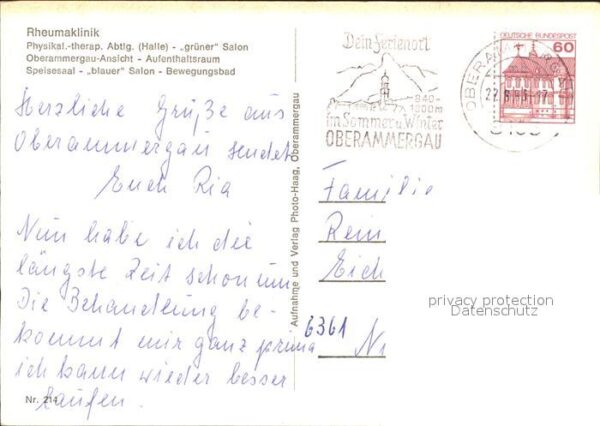 Rheumaklinik
Physikal.-therap. Abtlg. (Halle) - „grüner" Salon
Oberammergau-Ansicht - Aufenthaltsraum
Speisesaal - „blauer" Salon - Bewegungsbad
Herzliche Grüße aus
Oberammergau sendet
Euch Ria
Nun habe ich die
längste Zeit schon um
Die Behandlung be-
kommt mir ganz prima
ich kann wieder besser
laufen.
Nr. 214
Aufnahme und Verlag Photo-Haag, Oberammergau
Dein Ferienort
840-
1800m
im Sommer u. Winter
OBERAMMERGAU
DEUTSCHE BUNDESPOST
60
Familie
Rein
Eich
6361 Ni
privacy protection
Datenschutz